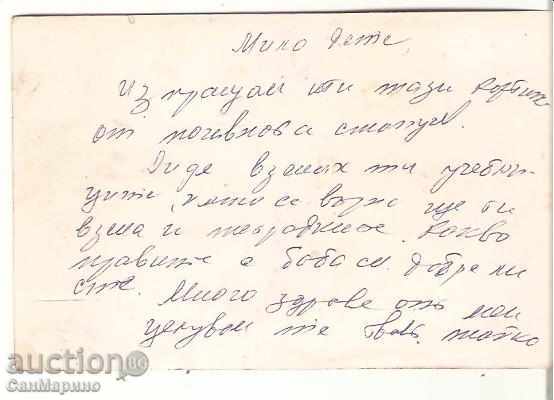 Мило дете,
Изпращам ти тази картичка
от почивка
взех ти учебни-
ците, като се върна ще ти
взема и тетрадките. Какво
правите с баба си. Добре ли
сте. Много здраве от мен
целувам те твоят татко
auction BG
СанМарино